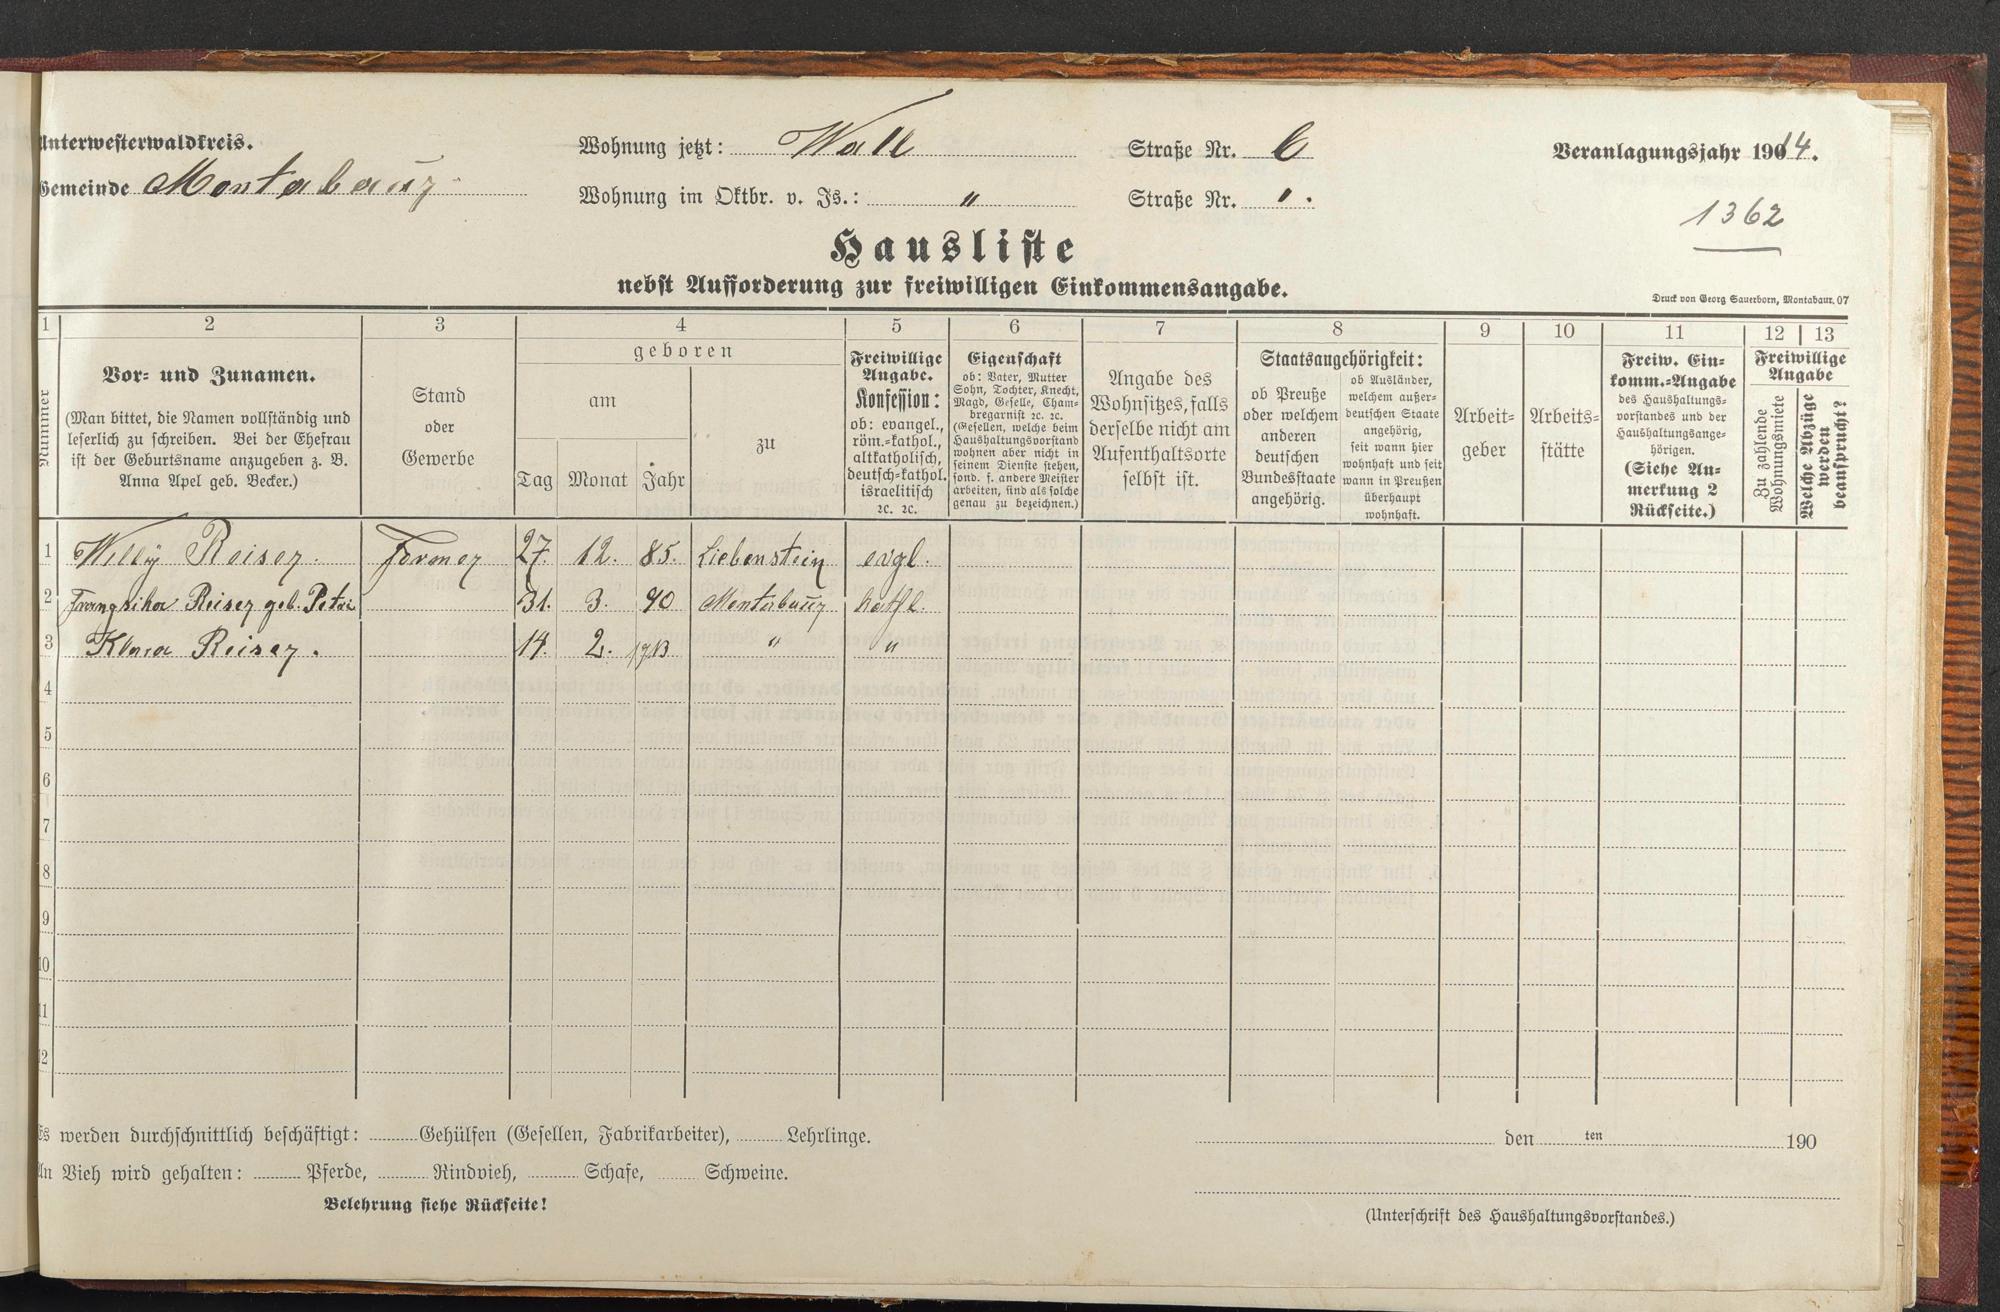 Unterwesterwaldkreis.
Gemeinde Montabaur
Wohnung jetzt: Wall Straße Nr. 6
Wohnung im Oktbr. v. Js.: " Straße Nr. ".
Veranlagungsjahr 1914.
1362
Hausliste
nebst Aufforderung zur freiwilligen Einkommensangabe.
Druck von Georg Sauerborn, Montabaur. 07
1 2 3 4 5 6 7 8 9 10 11 12 13
Nummer
Vor- und Zunamen.
(Man bittet, die Namen vollständig und
leserlich zu schreiben. Bei der Ehefrau
ist der Geburtsname anzugeben z. B.
Anna Apel geb. Becker.)
Stand
oder
Gewerbe
geboren
am
Tag Monat Jahr
zu
Freiwillige
Angabe.
Konfession:
ob: evangel.,
röm.-kathol.,
altkatholisch,
deutsch-kathol.
israelitisch
ꝛc. ꝛc.
Eigenschaft
ob: Vater, Mutter
Sohn, Tochter, Knecht,
Magd, Geselle, Cham-
bregarnist ꝛc. ꝛc.
(Gesellen, welche beim
Haushaltungsvorstand
wohnen aber nicht in
seinem Dienste stehen,
sond. f. andere Meister
arbeiten, sind als solche
genau zu bezeichnen.)
Angabe des
Wohnsitzes, falls
derselbe nicht am
Aufenthaltsorte
selbst ist.
Staatsangehörigkeit:
ob Preuße
oder welchem
anderen
deutschen
Bundesstaate
angehörig.
ob Ausländer,
welchem außer-
deutschen Staate
angehörig,
seit wann hier
wohnhaft und seit
wann in Preußen
überhaupt
wohnhaft.
Arbeit-
geber
Arbeits-
stätte
Freiw. Ein-
komm.-Angabe
des Haushaltungs-
vorstandes und der
Haushaltungsange-
hörigen.
(Siehe An-
merkung 2
Rückseite.)
Freiwillige
Angabe
Zu zahlende
Wohnungsmiete
Welche Abzüge
werden
beansprucht?
1 Willÿ Reiser. Former 27. 12. 85. Liebenstein evgl.
2 Franziska Reiser geb. Petri 31. 3. 90 Montabaur kathl.
3 Klara Reiser. 14. 2. 1913 " "
4
5
6
7
8
9
10
11
12
Es werden durchschnittlich beschäftigt: Gehülfen (Gesellen, Fabrikarbeiter), Lehrlinge.
An Vieh wird gehalten: Pferde, Rindvieh, Schafe, Schweine.
Belehrung siehe Rückseite!
den ten 190
(Unterschrift des Haushaltungsvorstandes.)